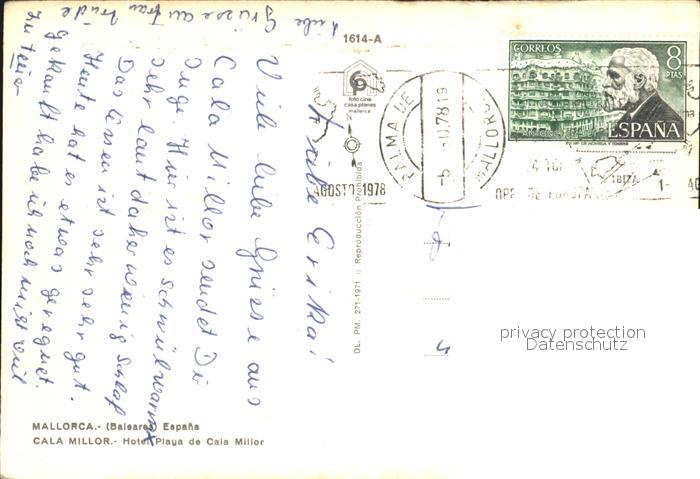 1614-A
foto cine
casa planas
mallorca
CORREOS
8
PTAS
ESPAÑA
PALMA DE MALLORCA
AGOSTO 1978
IBIZA
DL. PM. 271-1971 :: Reproducción Prohibida
Liebe Erika!
Viele liebe Grüsse aus
Cala Millor sendet Dir
Inge. Hier ist es schwül warm
sehr laut daher wenig Schlaf
Das Essen ist sehr sehr gut.
Heute hat es etwas geregnet.
Gekauft habe ich noch nicht viel
zu teuer
Liebe
Grüsse an Frau
MALLORCA.- (Baleares) España
CALA MILLOR.- Hotel Playa de Cala Millor
privacy protection
Datenschutz